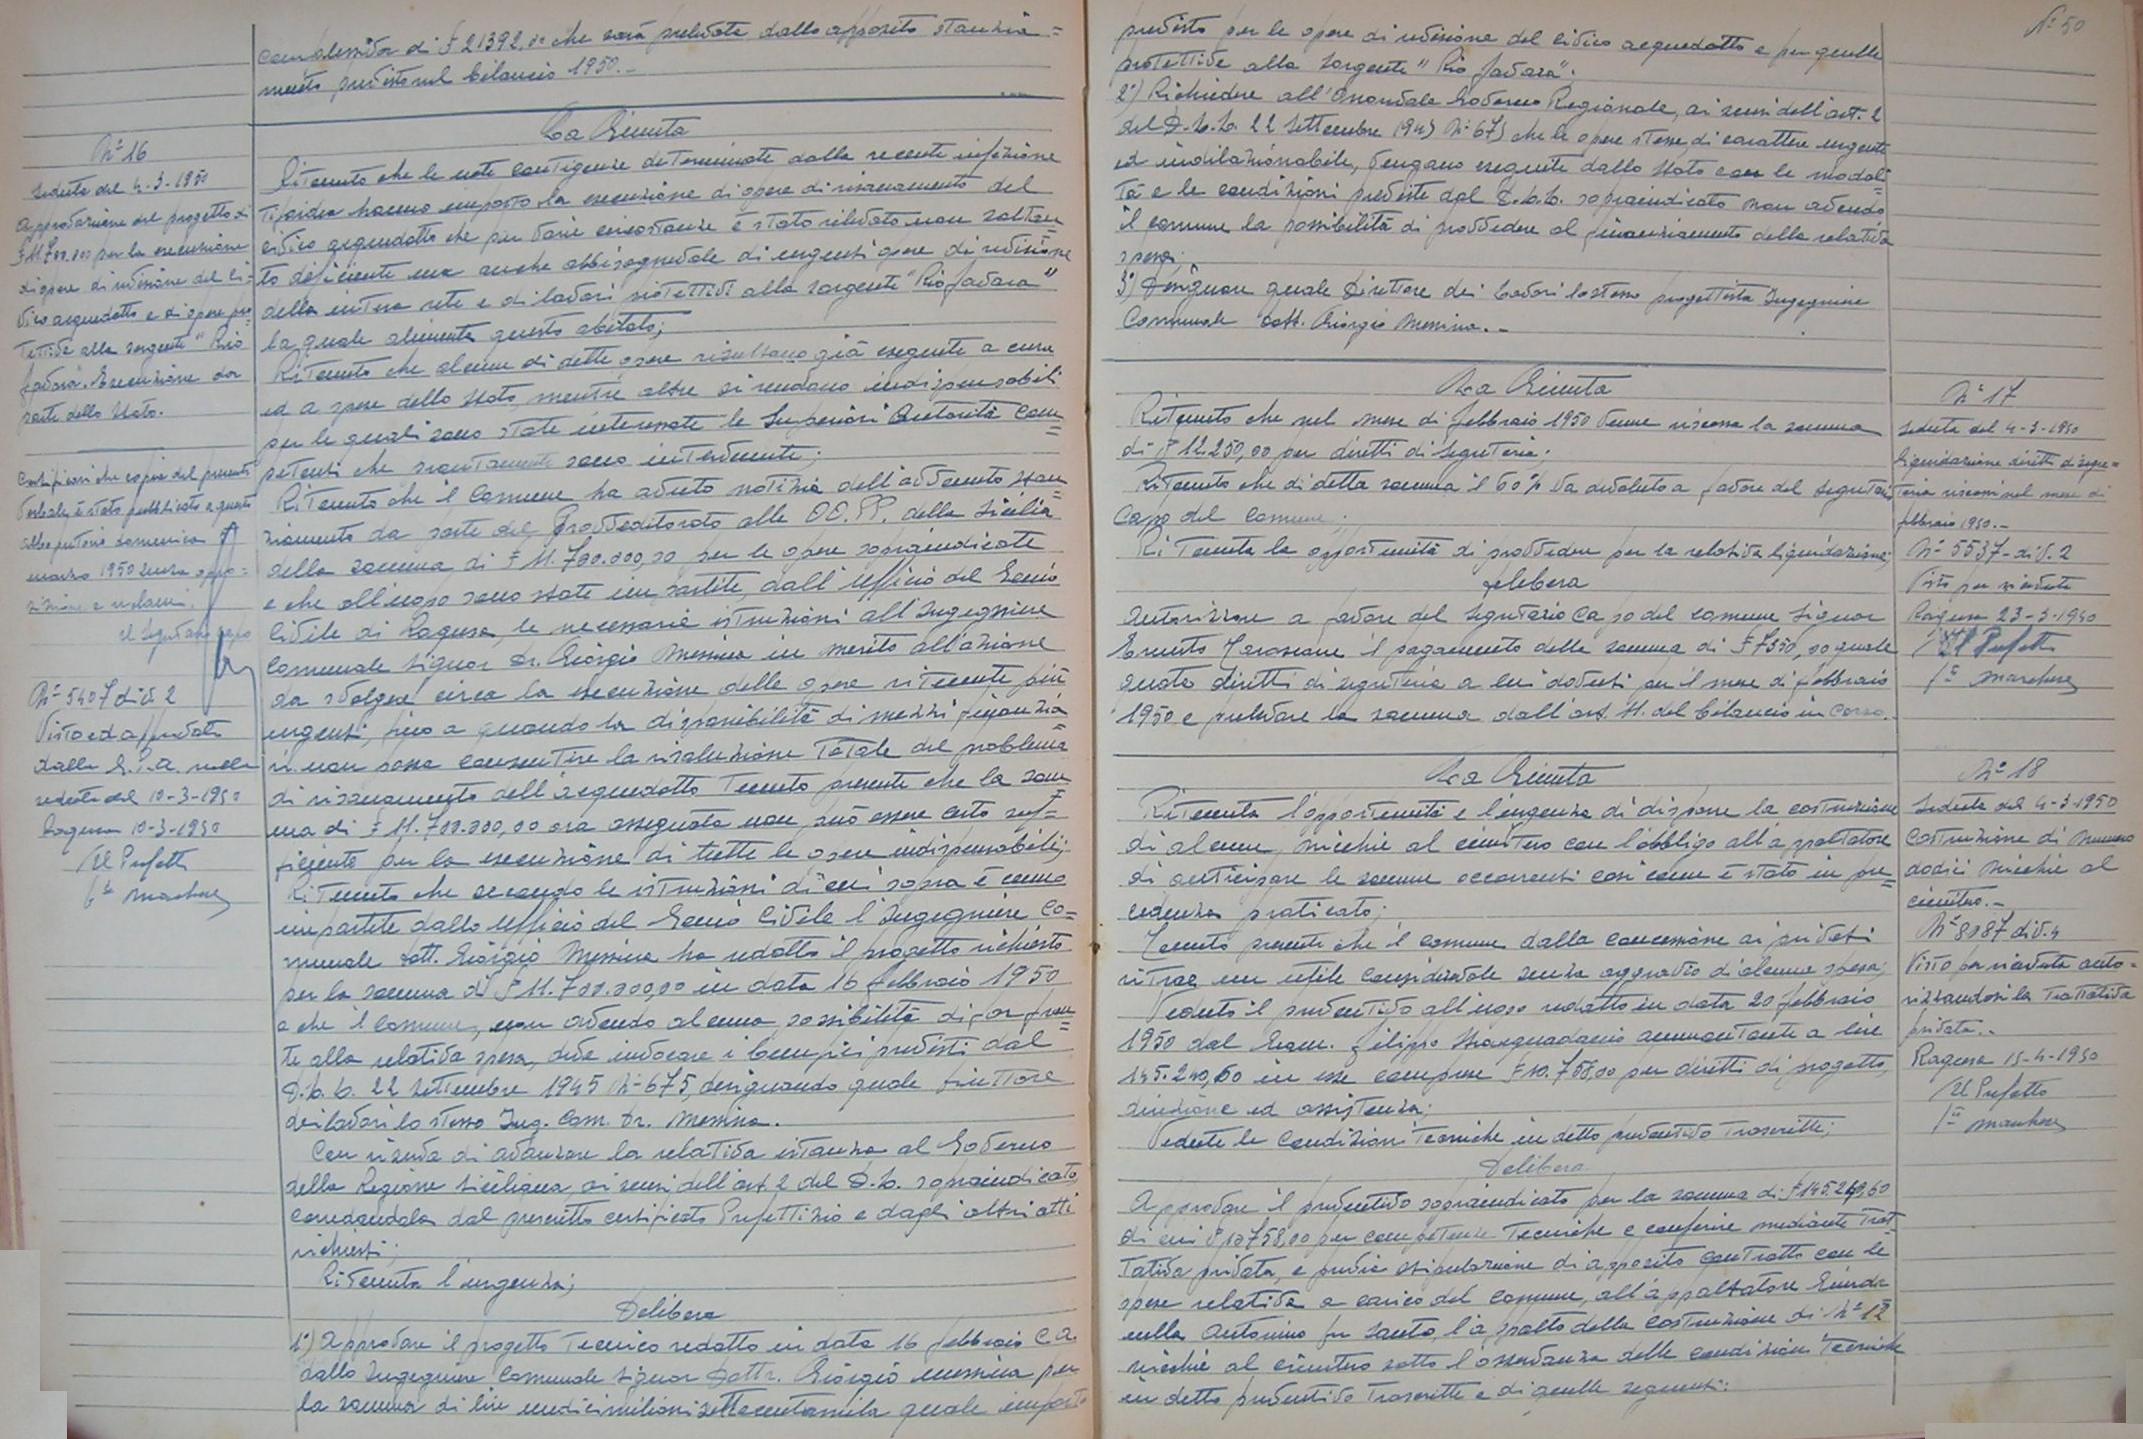 complessiva di £ 21392,00 che sarà prelevata dallo apposito stanzia=
mento previsto nel bilancio 1950.-
La Giunta
Ritenuto che le note contigenze determinate dalla recente infezione
tifoidea hanno imposto la esecuzione di opere di risanamento del
civico acquedotto che per varie circostanze è stato rilevato non soltan=
to deficiente ma anche abbisognevole di urgenti opere di revisione
della intera rete e di lavori protettivi alla sorgente "Rio favara"
la quale alimenta questo abitato;
Ritenuto che alcune di dette opere risultano già eseguite a cura
ed a spese dello Stato, mentre altre si rendono indispensabili
per le quali sono state interessate le Superiori Autorità com=
petenti che prontamente sono intervenute;
Ritenuto che il Comune ha avuto notizia dell'avvenuto stan=
ziamento da parte del Provveditorato alle OO.PP. della Sicilia
della somma di £ 11.700.000,00 per le opere sopraindicate
e che all'uopo sono state impartite, dall'Ufficio del Genio
Civile di Ragusa, le necessarie istruzioni all'Ingegniere
Comunale Signor Dr. Giorgio Messina in merito all'azione
da svolgere circa la esecuzione delle opere ritenute più
urgenti, fino a quando la disponibilità di mezzi finanzia=
ri non possa consentire la risoluzione totale del problema
di risanamento dell'acquedotto Tenuto presente che la som=
ma di £ 11.700.000,00 ora assegnata non può essere certo suf=
ficiente per la esecuzione di tutte le opere indispensabili;
Ritenuto che secondo le istruzioni di cui sopra è cenno
impartite dallo Ufficio del Genio Civile l'Ingegniere Co=
munale dott. Giorgio Messina ha redatto il progetto richiesto
per la somma di £ 11.700.000,00 in data 16 febbraio 1950
e che il Comune, non avendo alcuna possibilità di far fron=
te alla relativa spesa, deve invocare i benefici previsti dal
D.L.L. 22 Settembre 1945 N° 675, designando quale Direttore
dei lavori lo stesso Ing. Com. Dr. Messina.
Con riserva di avanzare la relativa istanza al Governo
della Regione Siciliana, ai sensi dell'art. 2 del D.L. sopraindicato,
corredandola dal prescritto certificato Prefettizio e dagli altri atti
richiesti;
Ritenuta l'urgenza;
Delibera
1°) Approvare il progetto Tecnico redatto in data 16 febbraio c.a.
dallo Ingegniere Comunale Signor Dottr. Giorgio Messina per
la somma di lire undicimilioni settecentomila quale importo
N° 16
Seduta del 4-3-1950
Approvazione del progetto di
£ 11.700.000 per la esecuzione
di opere di revisione del ci=
vico acquedotto e di opere pro=
tettive alla sorgente "Rio
favara". Esecuzione da
parte dello Stato.
Certificasi che copia del presente
verbale è stato pubblicato a questo
albo pretorio domenica
marzo 1950 senza oppo=
sizione e reclami.
Il Segretario Capo
N° 5407 div. 2
Vista ed approvata
dalla G.P.A. nella
seduta del 10-3-1950
Ragusa 10-3-1950
Il Prefetto
N° 50
previsto per le opere di revisione del civico acquedotto e per quelle
protettive alla sorgente "Rio favara".
2°) Richiedere all'Onorevole Governo Regionale, ai sensi dell'art. 2
del D.L.L. 22 Settembre 1945 N° 675 che le opere stesse di carattere urgente
ed indilazionabile, vengano eseguite dallo Stato con le modali=
tà e le condizioni previste dal D.L.L. sopraindicato non avendo
il comune la possibilità di provvedere al finanziamento della relativa
spesa;
3°) Designare quale Direttore dei Lavori lo stesso progettista Ingegniere
Comunale Dott. Giorgio Messina.-
La Giunta
Ritenuto che nel mese di febbraio 1950 venne riscossa la somma
di £ 12.250,00 per diritti di Segreteria;
Ritenuto che di detta somma il 60% va devoluto a favore del Segretario
Capo del Comune;
Ritenuta la opportunità di provvedere per la relativa liquidazione;
Delibera
Autorizzare a favore del Segretario Capo del Comune Signor
il pagamento della somma di £ 7350,00 quale
quota diritti di segreteria a lui dovuti per il mese di febbraio
1950 e prelevare la somma dall'art. 11. del bilancio in corso.
La Giunta
Ritenuta l'opportunità e l'urgenza di disporre la costruzione
di alcune nicchie al cimitero con l'obbligo all'appaltatore
di anticipare le somme occorrenti così come è stato in pre=
cedenza praticato;
Tenuto presente che il comune dalla concessione ai privati
ritrae un utile considerevole senza aggravio di alcuna spesa;
Veduto il preventivo all'uopo redatto in data 20 febbraio
1950 dal Geom. Filippo ammontante a lire
145.240,60 in esse comprese £ 10.758,00 per diritti di progetto,
direzione ed assistenza;
Vedute le condizioni Tecniche in detto preventivo trascritte;
Delibera
Approvare il preventivo sopraindicato per la somma di £ 145.240,60
di cui £ 10758,00 per competenze Tecniche e conferire mediante Trat=
tativa privata, e previa stipulazione di apposito contratto con le
spese relative a carico del Comune, all'appaltatore
Antonino fu Santo, l'appalto della costruzione di N° 12
nicchie al cimitero sotto l'osservanza delle condizioni Tecniche
in detto preventivo trascritte e di quelle seguenti:
N° 17
Seduta del 4-3-1950
Liquidazione diritti di segre=
teria riscossi nel mese di
febbraio 1950.-
N° 5537-div. 2
Visto per ricevuta
Ragusa 23-3-1950
Il Prefetto
N° 18
Seduta del 4-3-1950
Costruzione di numero
dodici nicchie al
cimitero.-
N° 8087 div. 4
Visto per ricevuta auto=
rizzandosi la Trattativa
privata.-
Ragusa 15-4-1950
Il Prefetto